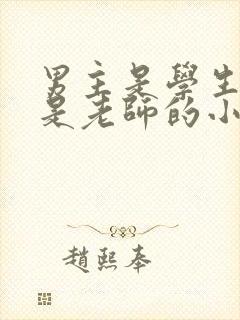 男主是學生
是老師的小
趙熙奉